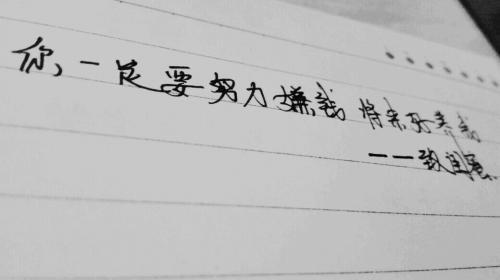 你，一定要努力赚钱 将来好养我
——致闺蜜